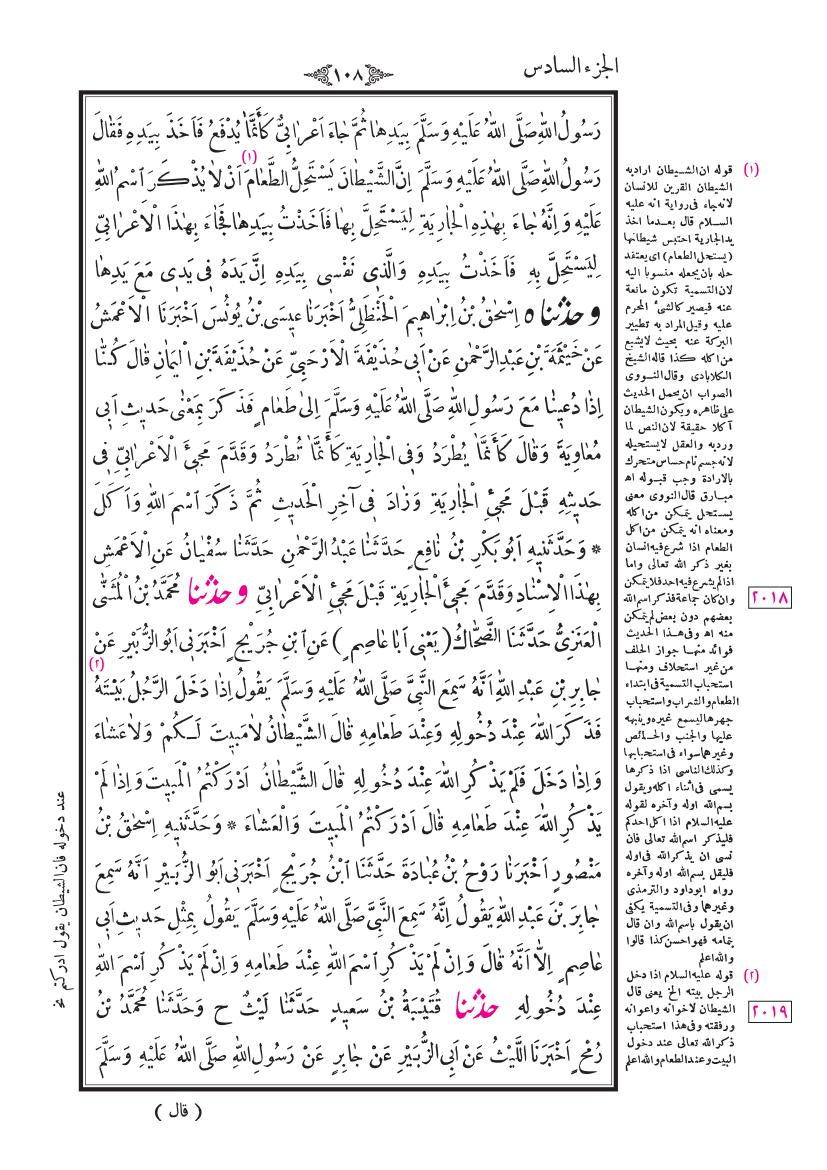 الجزء السادس
١٠٨
رَسُولُ اللهِ صَلَّى اللهُ عَلَيْهِ وَسَلَّمَ بِيَدِهَا ثُمَّ جَاءَ أَعْرَابِيٌّ كَأَنَّمَا يُدْفَعُ فَأَخَذَ بِيَدِهِ فَقَالَ
رَسُولُ اللهِ صَلَّى اللهُ عَلَيْهِ وَسَلَّمَ إِنَّ الشَّيْطَانَ يَسْتَحِلُّ الطَّعَامَ (١) أَنْ لَا يُذْكَرَ اسْمُ اللهِ
عَلَيْهِ وَإِنَّهُ جَاءَ بِهٰذِهِ الْجَارِيَةِ لِيَسْتَحِلَّ بِهَا فَأَخَذْتُ بِيَدِهَا فَجَاءَ بِهٰذَا الْأَعْرَابِيِّ
لِيَسْتَحِلَّ بِهِ فَأَخَذْتُ بِيَدِهِ وَالَّذِي نَفْسِي بِيَدِهِ إِنَّ يَدَهُ فِي يَدِي مَعَ يَدِهَا
وحدثناه إِسْحٰقُ بْنُ إِبْرَاهِيمَ الْحَنْظَلِيُّ أَخْبَرَنَا عِيسَى بْنُ يُونُسَ أَخْبَرَنَا الْأَعْمَشُ
عَنْ خَيْثَمَةَ بْنِ عَبْدِ الرَّحْمٰنِ عَنْ أَبِي حُذَيْفَةَ الْأَرْحَبِيِّ عَنْ حُذَيْفَةَ بْنِ الْيَمَانِ قَالَ كُنَّا
إِذَا دُعِينَا مَعَ رَسُولِ اللهِ صَلَّى اللهُ عَلَيْهِ وَسَلَّمَ إِلَى طَعَامٍ فَذَكَرَ بِمَعْنَى حَدِيثِ أَبِي
مُعَاوِيَةَ وَقَالَ كَأَنَّمَا يُطْرَدُ وَفِي الْجَارِيَةِ كَأَنَّمَا تُطْرَدُ وَقَدَّمَ مَجِيءَ الْأَعْرَابِيِّ فِي
حَدِيثِهِ قَبْلَ مَجِيءِ الْجَارِيَةِ وَزَادَ فِي آخِرِ الْحَدِيثِ ثُمَّ ذَكَرَ اسْمَ اللهِ وَأَكَلَ
* وَحَدَّثَنِيهِ أَبُو بَكْرِ بْنُ نَافِعٍ حَدَّثَنَا عَبْدُ الرَّحْمٰنِ حَدَّثَنَا سُفْيَانُ عَنِ الْأَعْمَشِ
بِهٰذَا الْإِسْنَادِ وَقَدَّمَ مَجِيءَ الْجَارِيَةِ قَبْلَ مَجِيءِ الْأَعْرَابِيِّ وحدثنا مُحَمَّدُ بْنُ الْمُثَنَّى
الْعَنَزِيُّ حَدَّثَنَا الضَّحَّاكُ (يَعْنِي أَبَا عَاصِمٍ) عَنِ ابْنِ جُرَيْجٍ أَخْبَرَنِي أَبُو الزُّبَيْرِ عَنْ
جَابِرِ بْنِ عَبْدِ اللهِ أَنَّهُ سَمِعَ النَّبِيَّ صَلَّى اللهُ عَلَيْهِ وَسَلَّمَ يَقُولُ إِذَا دَخَلَ الرَّجُلُ بَيْتَهُ (٢)
فَذَكَرَ اللهَ عِنْدَ دُخُولِهِ وَعِنْدَ طَعَامِهِ قَالَ الشَّيْطَانُ لَا مَبِيتَ لَكُمْ وَلَا عَشَاءَ
وَإِذَا دَخَلَ فَلَمْ يَذْكُرِ اللهَ عِنْدَ دُخُولِهِ قَالَ الشَّيْطَانُ أَدْرَكْتُمُ الْمَبِيتَ وَإِذَا لَمْ
يَذْكُرِ اللهَ عِنْدَ طَعَامِهِ قَالَ أَدْرَكْتُمُ الْمَبِيتَ وَالْعَشَاءَ * وَحَدَّثَنِيهِ إِسْحٰقُ بْنُ
مَنْصُورٍ أَخْبَرَنَا رَوْحُ بْنُ عُبَادَةَ حَدَّثَنَا ابْنُ جُرَيْجٍ أَخْبَرَنِي أَبُو الزُّبَيْرِ أَنَّهُ سَمِعَ
جَابِرَ بْنَ عَبْدِ اللهِ يَقُولُ إِنَّهُ سَمِعَ النَّبِيَّ صَلَّى اللهُ عَلَيْهِ وَسَلَّمَ يَقُولُ بِمِثْلِ حَدِيثِ أَبِي
عَاصِمٍ إِلَّا أَنَّهُ قَالَ وَإِنْ لَمْ يَذْكُرِ اسْمَ اللهِ عِنْدَ طَعَامِهِ وَإِنْ لَمْ يَذْكُرِ اسْمَ اللهِ
عِنْدَ دُخُولِهِ حدثنا قُتَيْبَةُ بْنُ سَعِيدٍ حَدَّثَنَا لَيْثٌ ح وَحَدَّثَنَا مُحَمَّدُ بْنُ
رُمْحٍ أَخْبَرَنَا اللَّيْثُ عَنْ أَبِي الزُّبَيْرِ عَنْ جَابِرٍ عَنْ رَسُولِ اللهِ صَلَّى اللهُ عَلَيْهِ وَسَلَّمَ
( قال )
(١) قوله ان الشيطان اراد به
الشيطان القرين للانسان
لانه جاء فى رواية انه عليه
السلام قال بعدما اخذ
يد الجارية احتبس شيطانها
(يستحل الطعام) اى يعتقد
حله بان يجعله منسوبا اليه
لان التسمية تكون مانعة
عنه فيصير كالشئ المحرم
عليه وقيل المراد به تطيير
البركة عنه بحيث لا يشبع
من اكله كذا قاله الشيخ
الكلابادى وقال النووى
الصواب ان يحمل الحديث
على ظاهره ويكون الشيطان
آكلا حقيقة لان النص لما
ورد به والعقل لا يستحيله
لانه جسم نام حساس متحرك
بالارادة وجب قبوله اه
مبارق قال النووى معنى
يستحل يتمكن من اكله
ومعناه انه يتمكن من اكل
الطعام اذا شرع فيه انسان
بغير ذكر الله تعالى واما
اذا لم يشرع فيه احد فلا يتمكن
وان كان جماعة فذكر اسم الله
بعضهم دون بعض لم يتمكن
منه اه وفى هذا الحديث
فوائد منها جواز الحلف
من غير استحلاف ومنها
استحباب التسمية فى ابتداء
الطعام والشراب واستحباب
جهرها ليسمع غيره وينبهه
عليها والجنب والحائض
وغيرهما سواء فى استحبابها
وكذلك الناسى اذا ذكرها
يسمى فى اثناء اكله ويقول
بسم الله اوله وآخره لقوله
عليه السلام اذا اكل احدكم
فليذكر اسم الله تعالى فان
نسى ان يذكر الله فى اوله
فليقل بسم الله اوله وآخره
رواه ابو داود والترمذى
وغيرهما وفى التسمية يكفى
ان يقول باسم الله وان قال
بتمامه فهو احسن كذا قالوا
والله اعلم
(٢) قوله عليه السلام اذا دخل
الرجل بيته الخ يعنى قال
الشيطان لاخوانه واعوانه
ورفقته وفى هذا استحباب
ذكر الله تعالى عند دخول
البيت وعند الطعام والله اعلم
٢٠١٨
٢٠١٩
عند دخوله فان الشيطان يقول ادركتم نخ